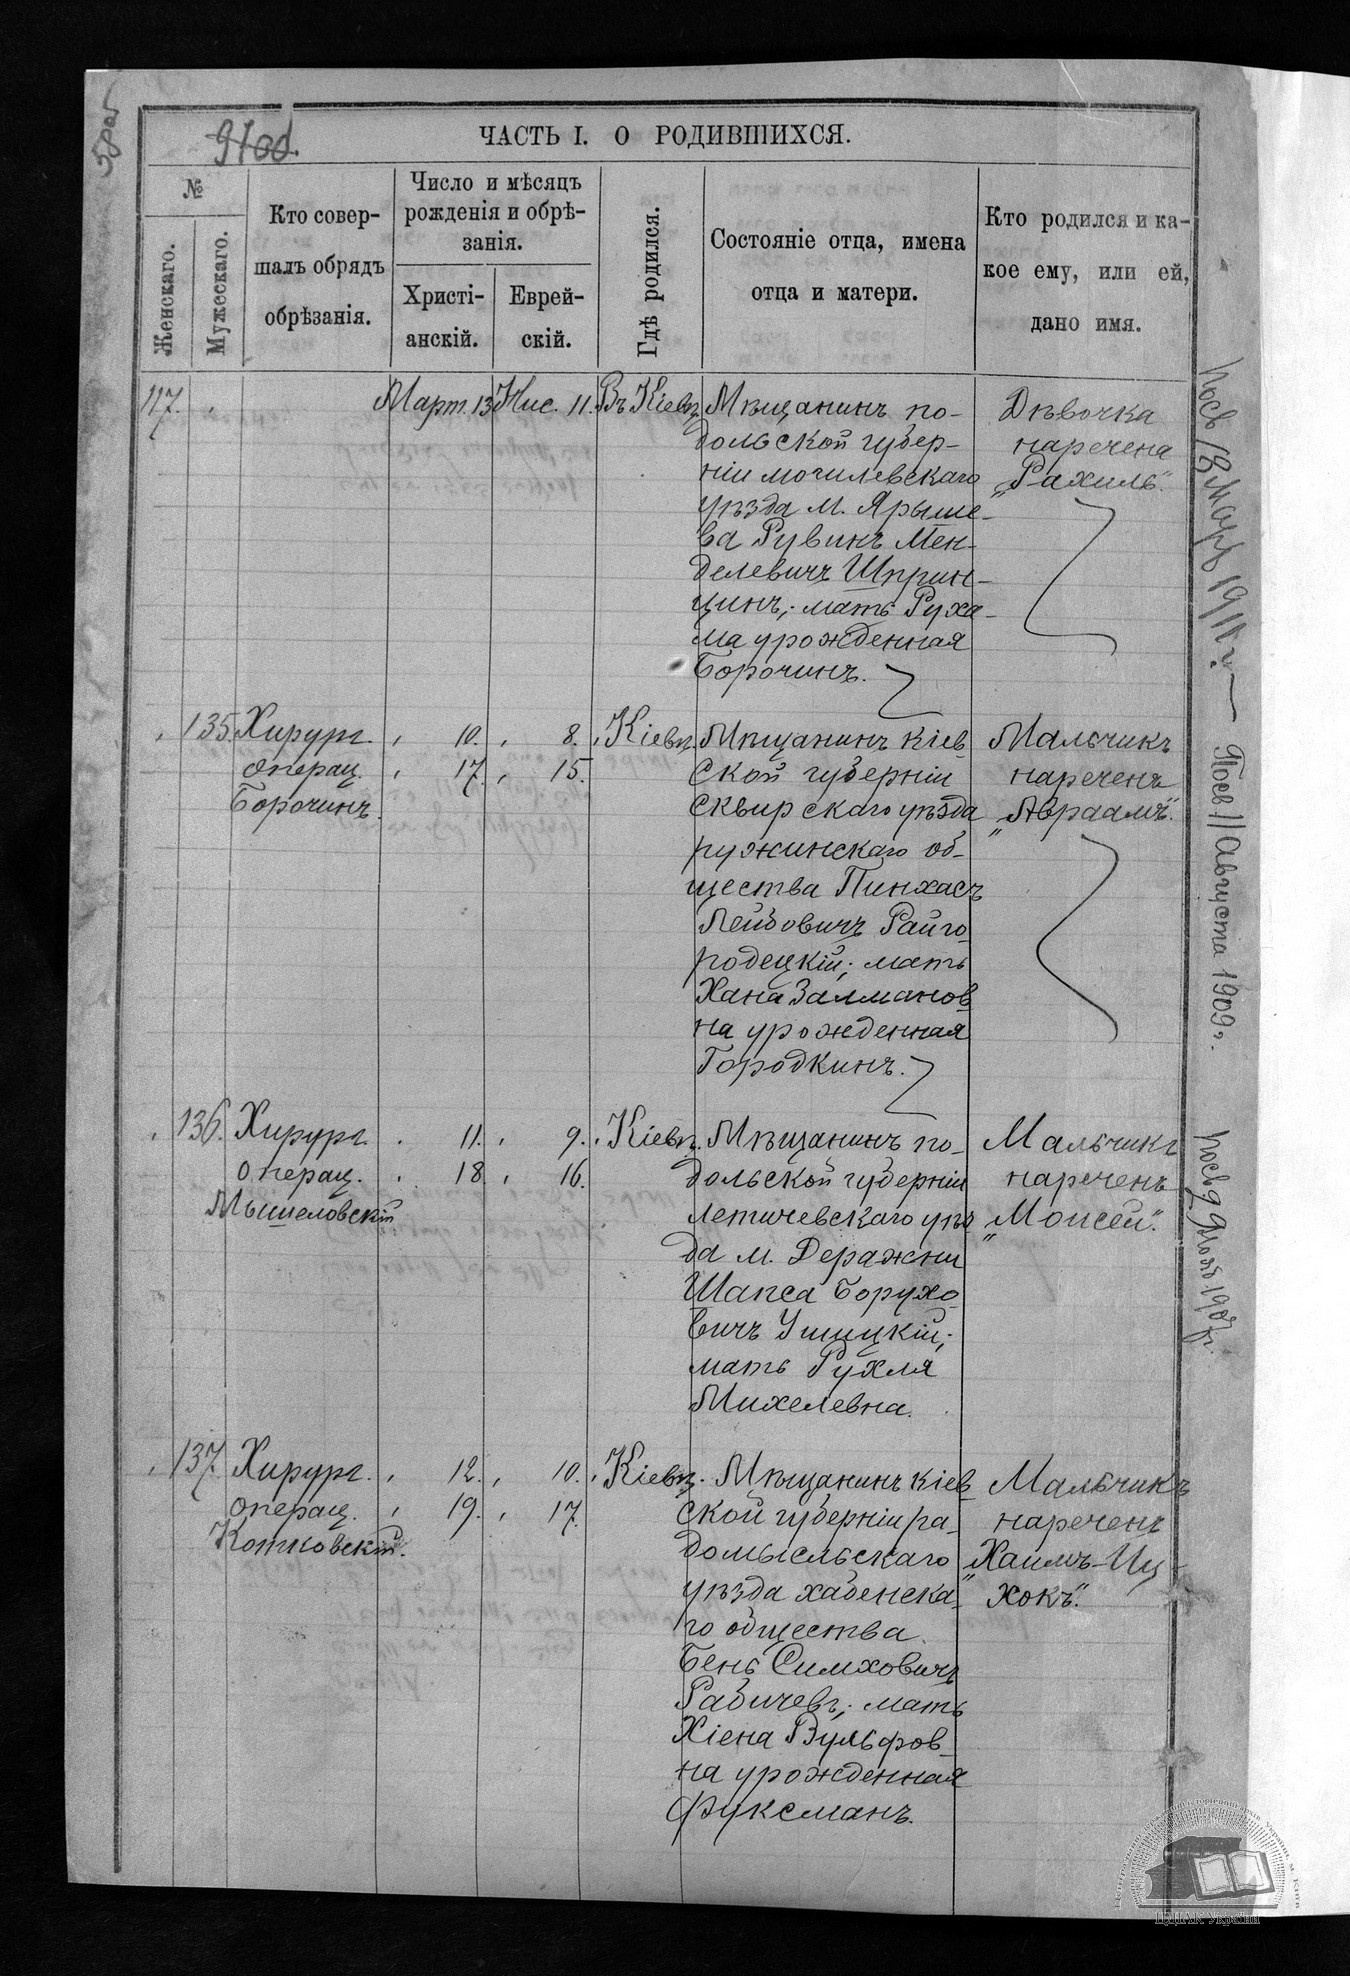 ЧАСТЬ I. О РОДИВШИХСЯ.
№
Женскаго.
Мужескаго.
Кто совер-
шалъ обрядъ
обрѣзанія.
Число и мѣсяцъ
рожденія и обрѣ-
занія.
Христі-
анскій.
Еврей-
скій.
Гдѣ родился.
Состояніе отца, имена
отца и матери.
Кто родился и ка-
кое ему, или ей,
дано имя.
117. Март. 13 Нис. 11. Въ Кіевѣ
Мѣщанинъ по-
дольской губер-
ніи могилевскаго
уѣзда м. Ярыше-
ва Рувинъ Мен-
делевичъ Шприн-
цинъ; мать Руха-
ма урожденная
Борочинъ.
Дѣвочка
наречена
„Рахиль".
135. Хирург. 10. 8. Кіевѣ
операц. 17. 15.
Борочинъ.
Мѣщанинъ Кіев
ской губерніи
сквирскаго уѣзда
ружинскаго об-
щества Пинхасъ
Лейбовичъ Райго
родецкій; мать
Хана Залманов
на урожденная
Городкинъ.
Мальчикъ
нареченъ
„Авраамъ".
136. Хирург. 11. 9. Кіевѣ.
операц. 18. 16.
Мышеловскій
Мѣщанинъ по-
дольской губерніи
летичевскаго уѣз
да м. Деражни
Шапса Борухо
вичъ Ушицкій;
мать Рухля
Михелевна.
Мальчикъ
нареченъ
„Моисей".
137. Хирург. 12. 10. Кіевѣ.
операц. 19. 17.
Котковскій.
Мѣщанинъ Кіев
ской губерніи ра-
домысльскаго
уѣзда хабенска-
го общества
Бень Симховичъ
Рабичевъ; мать
Хіена Вульфов
на урожденная
Фуксманъ.
Мальчикъ
нареченъ
„Хаимъ-Иц-
хокъ".
1911 г.
Посв 11 Августа 1909 г.
1907 г.
ЦДІАК України